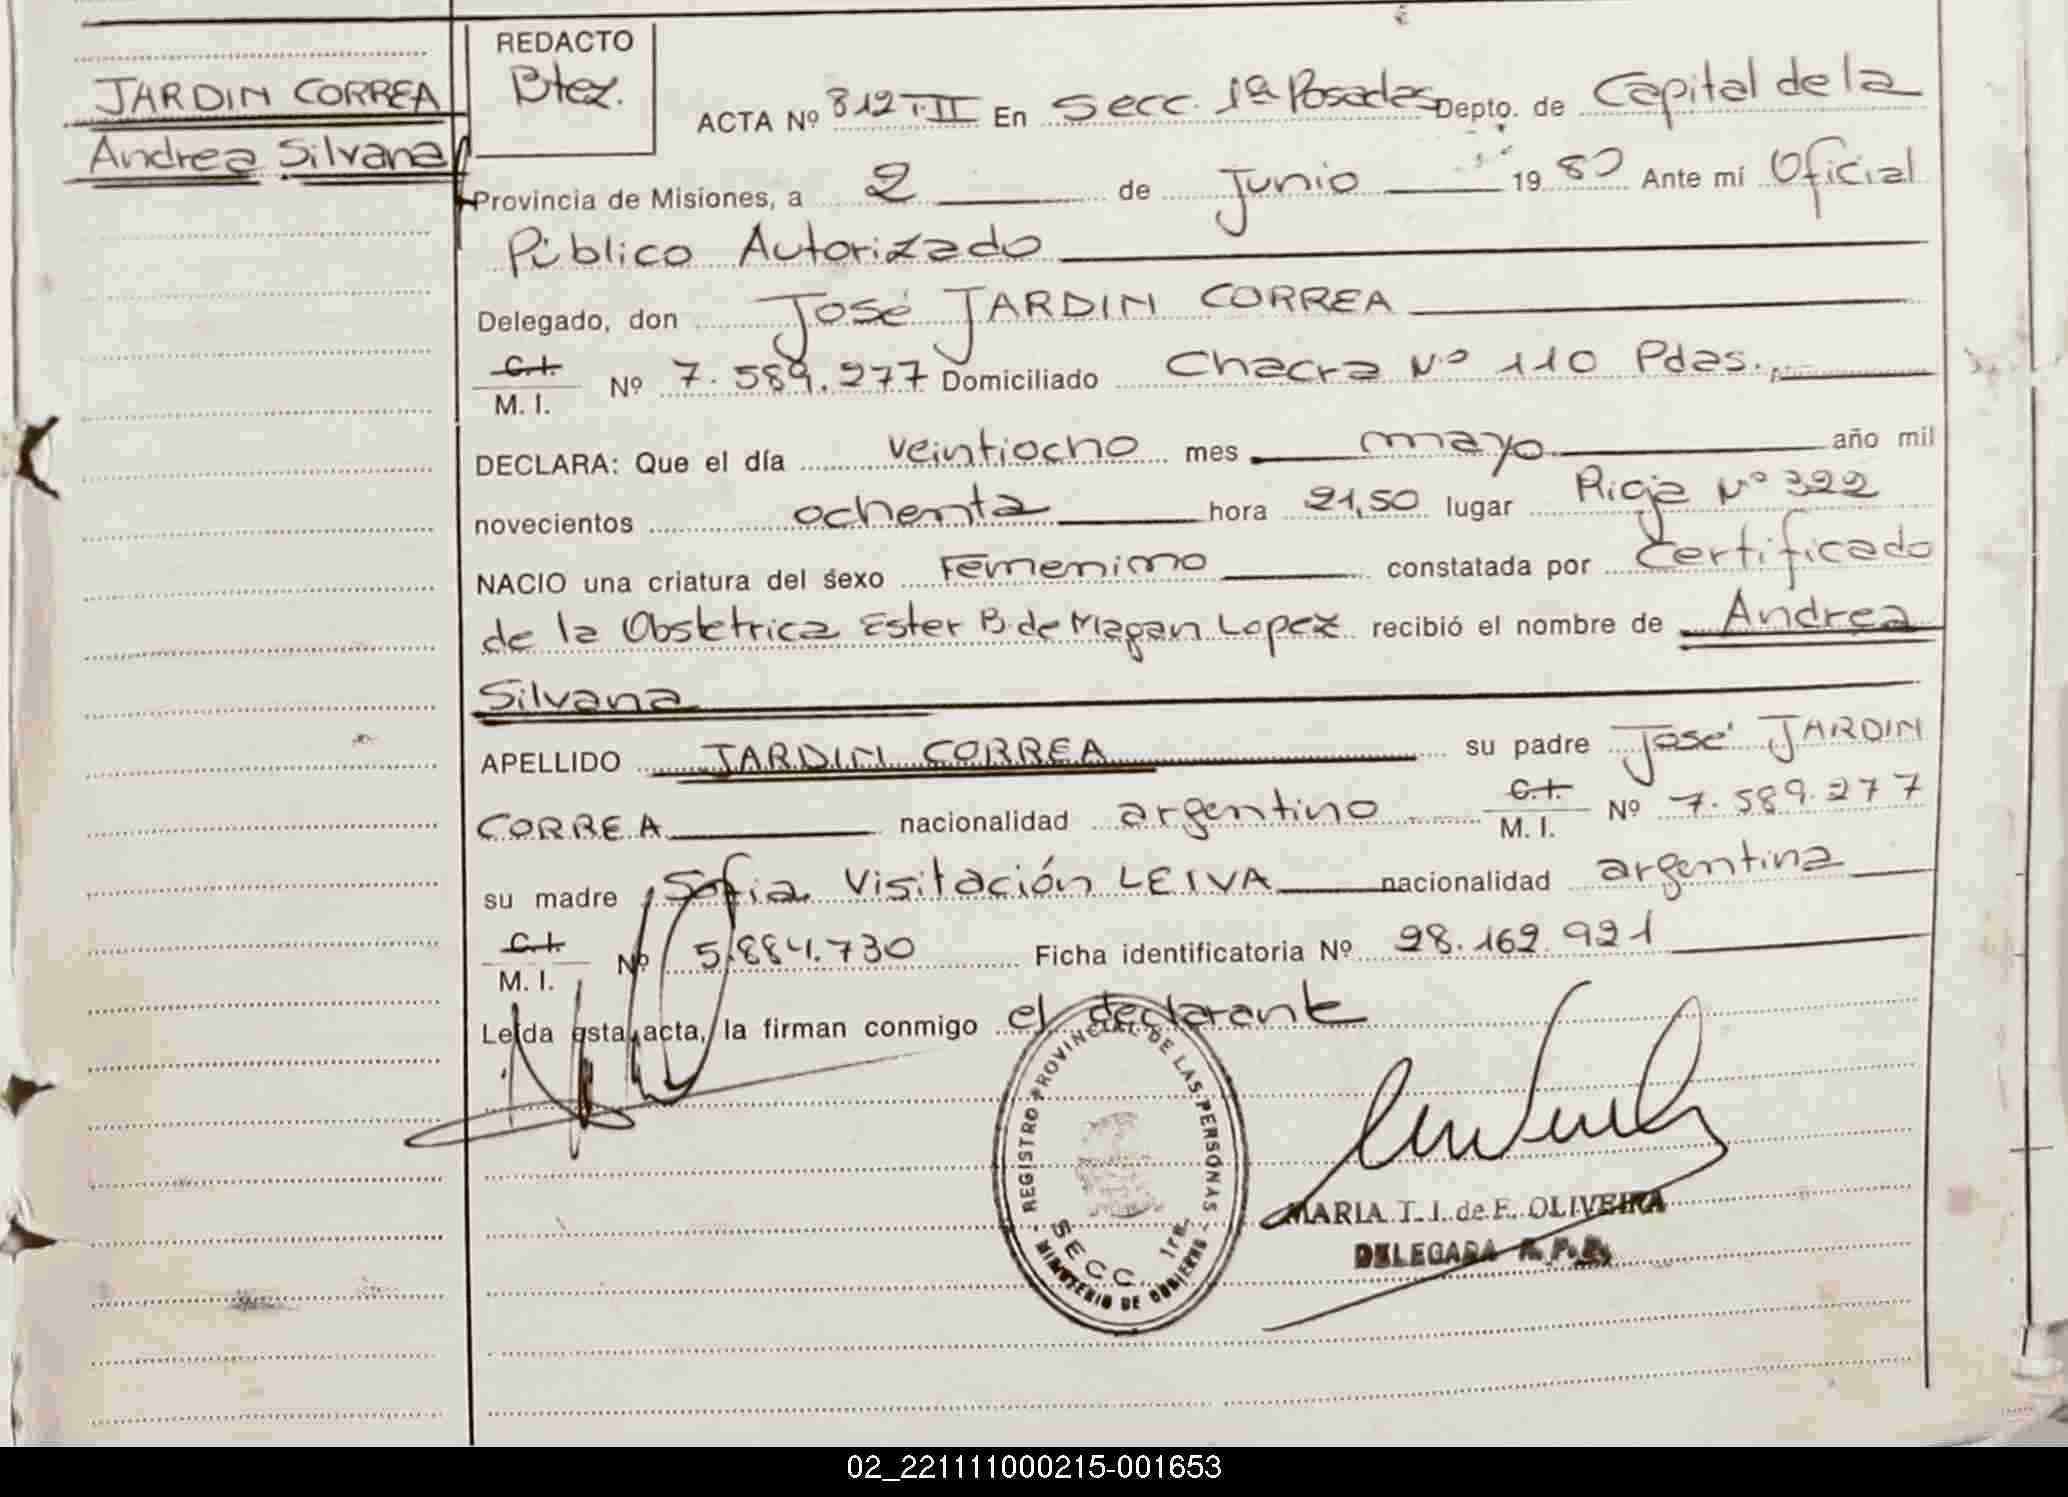 JARDIN CORREA
Andrea Silvana
REDACTO
Btez.
ACTA Nº 812 T.II En Secc. 1ª Posadas Depto. de Capital de la
Provincia de Misiones, a 2 de Junio 1980 Ante mí Oficial
Público Autorizado
Delegado, don José JARDIN CORREA
C.I.
M. I. Nº 7.589.277 Domiciliado Chacra Nº 110 Pdas.
DECLARA: Que el día veintiocho mes mayo año mil
novecientos ochenta hora 21,50 lugar Rioja Nº 322
NACIO una criatura del sexo Femenino constatada por Certificado
de la Obstetrica Ester B. de Magan Lopez recibió el nombre de Andrea
Silvana
APELLIDO JARDIN CORREA su padre José JARDIN
CORREA nacionalidad argentino C.I.
M. I. Nº 7.589.277
su madre Sofia Visitación LEIVA nacionalidad argentina
C.I.
M. I. Nº 5.884.730 Ficha identificatoria Nº 28.162.921
Leída esta acta, la firman conmigo el declarante
REGISTRO PROVINCIAL DE LAS PERSONAS
SECC. 1ra.
MINISTERIO DE GOBIERNO
MARIA T. I. de F. OLIVEIRA
DELEGADA R. P. P.
02_221111000215-001653